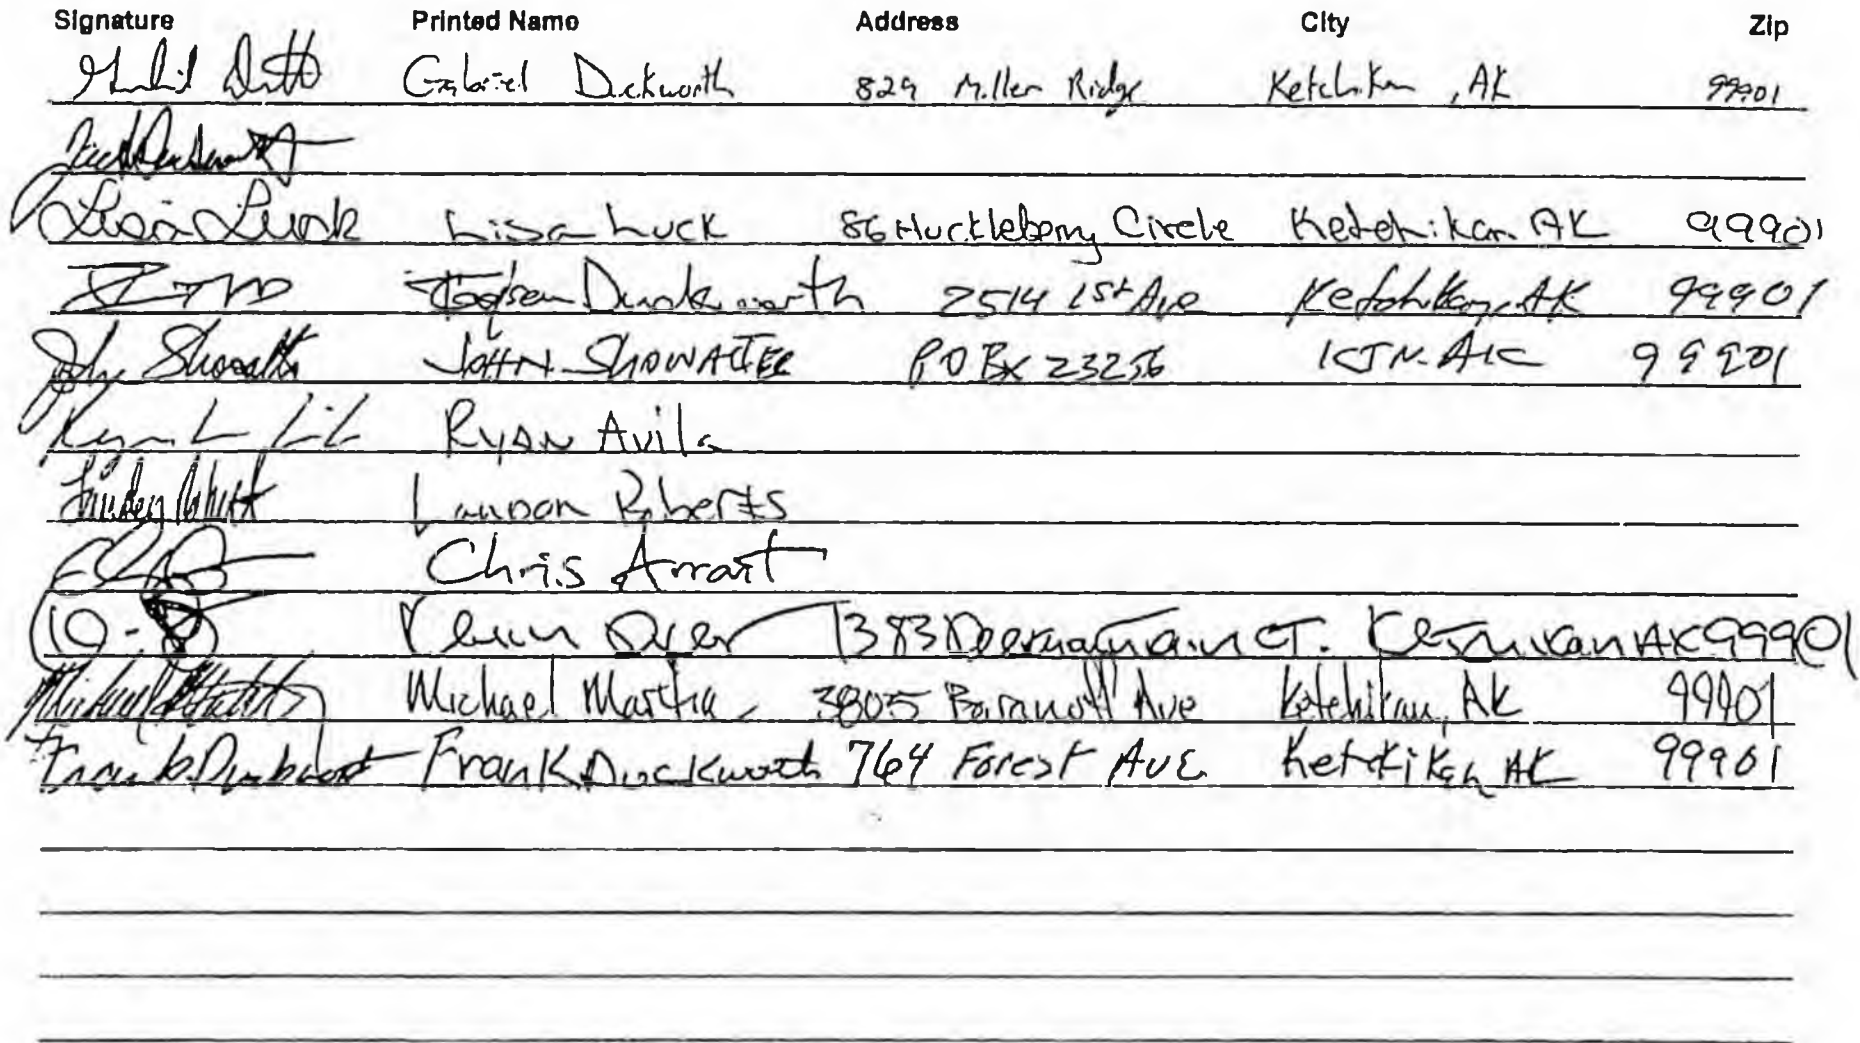 Signature Printed Name Address City Zip
Gabriel Duckworth 829 Miller Ridge Ketchikan, AK 99901
Lisa Luck Lisa Luck 86 Huckleberry Circle Ketchikan AK 99901
Duckworth 2514 1st Ave Ketchikan, AK 99901
John Showalter JOHN SHOWALTER PO Bx 23256 KTN. AK 99901
RYAN Avila
Landon Roberts
Chris Arrant
Kevin Dyer 1383 Deermountain CT. Ketchikan AK 99901
Michael Martha 3805 Baranoff Ave Ketchikan, AK 99901
Frank Duckworth Frank Duckworth 764 Forest AVE Ketchikan, AK 99901